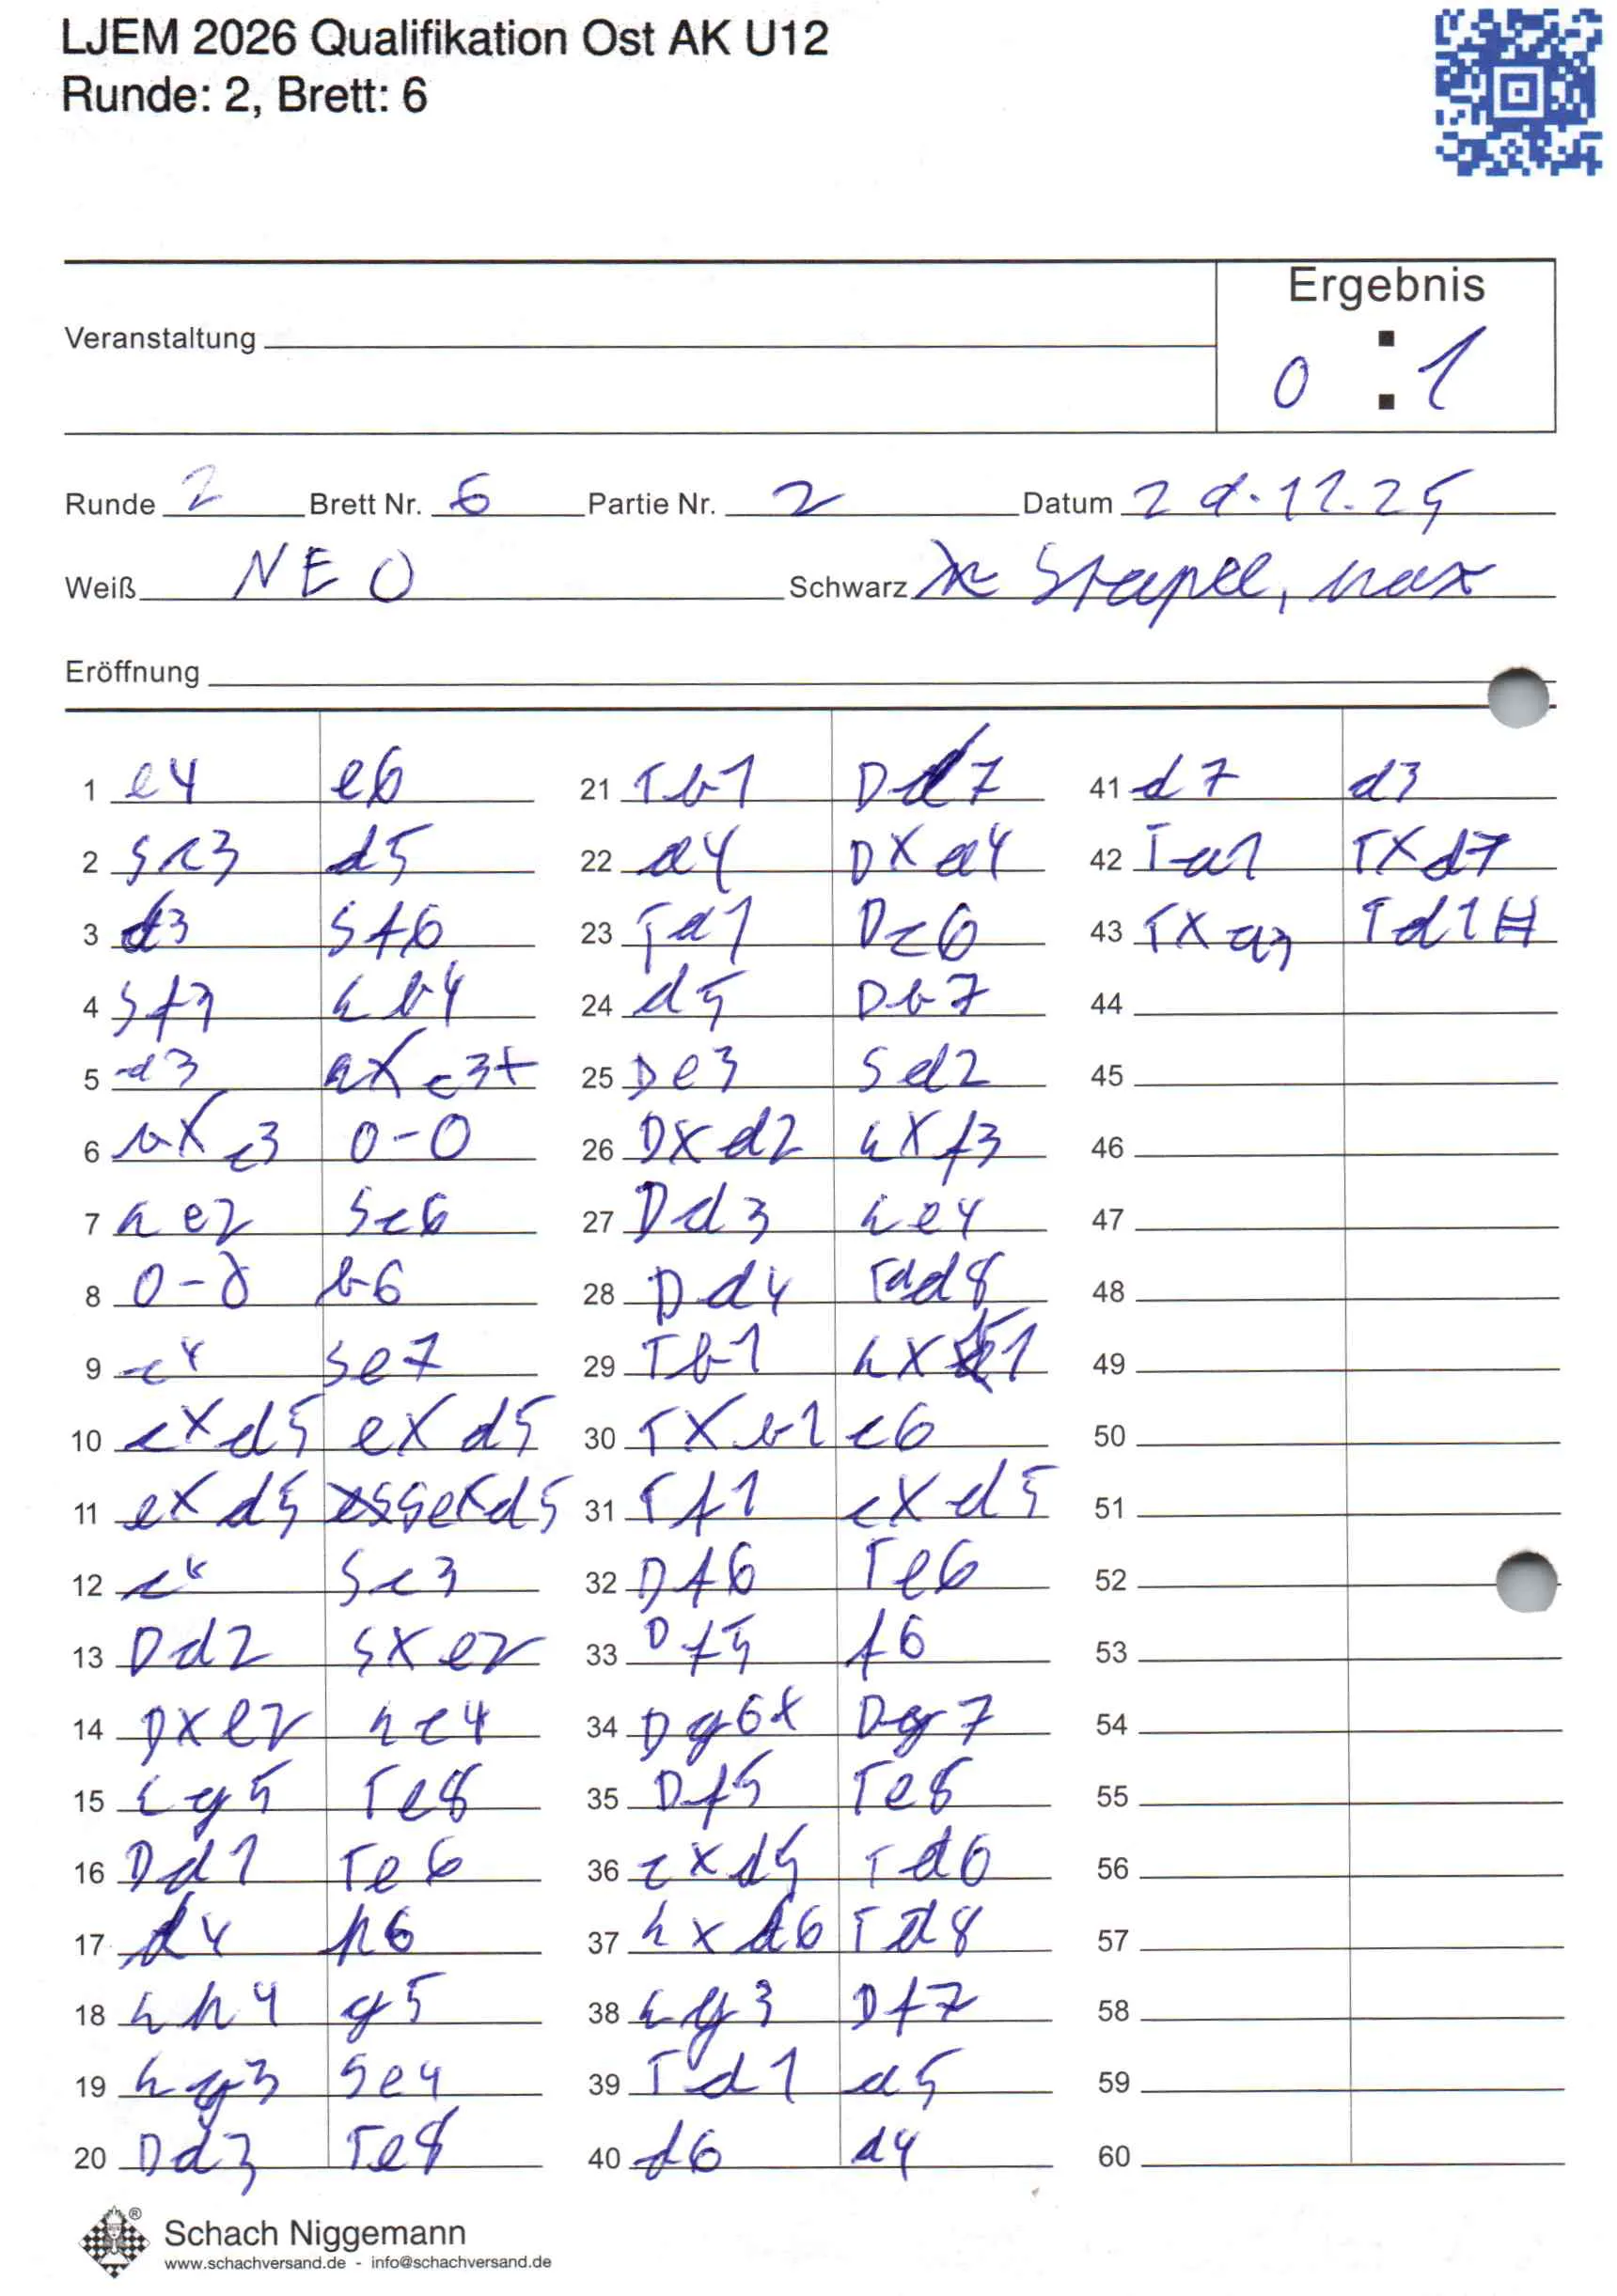 LJEM 2026 Qualifikation Ost AK U12
Runde: 2, Brett: 6
Ergebnis
Veranstaltung
0 : 1
Runde 2 Brett Nr. 6 Partie Nr. 2 Datum
Weiß NEO Schwarz Stapel, max
Eröffnung
1 e4 e6 21 Tb1 Dd7 41 d7 d3
2 Sc3 d5 22 a4 DXa4 42 Ta1 TXd7
3 d3 Sf6 23 Td1 Dc6 43 TXa3 Td1#
4 Sf3 Lb4 24 d5 Db7 44
5 a3 LXc3+ 25 De3 Sd2 45
6 bXc3 0-0 26 DXd2 LXf3 46
7 Le2 Sc6 27 Dd3 Le4 47
8 0-0 b6 28 Dd4 Tad8 48
9 c4 Se7 29 Tb1 LXb1 49
10 cXd5 eXd5 30 TXb1 c6 50
11 eXd5 SeXd5 31 Tf1 cXd5 51
12 c4 Sc3 32 Df6 Te6 52
13 Dd2 SXe2 33 Df5 f6 53
14 DXe2 Lc4 34 Dg6+ Dg7 54
15 Lg5 Te8 35 Df5 Te8 55
16 Dd1 Te6 36 cXd5 Td6 56
17 d4 h6 37 LXd6 Td8 57
18 Lh4 g5 38 Lg3 Df7 58
19 Lg3 Se4 39 Td1 a5 59
20 Dd3 Te8 40 d6 a4 60
Schach Niggemann
www.schachversand.de - info@schachversand.de